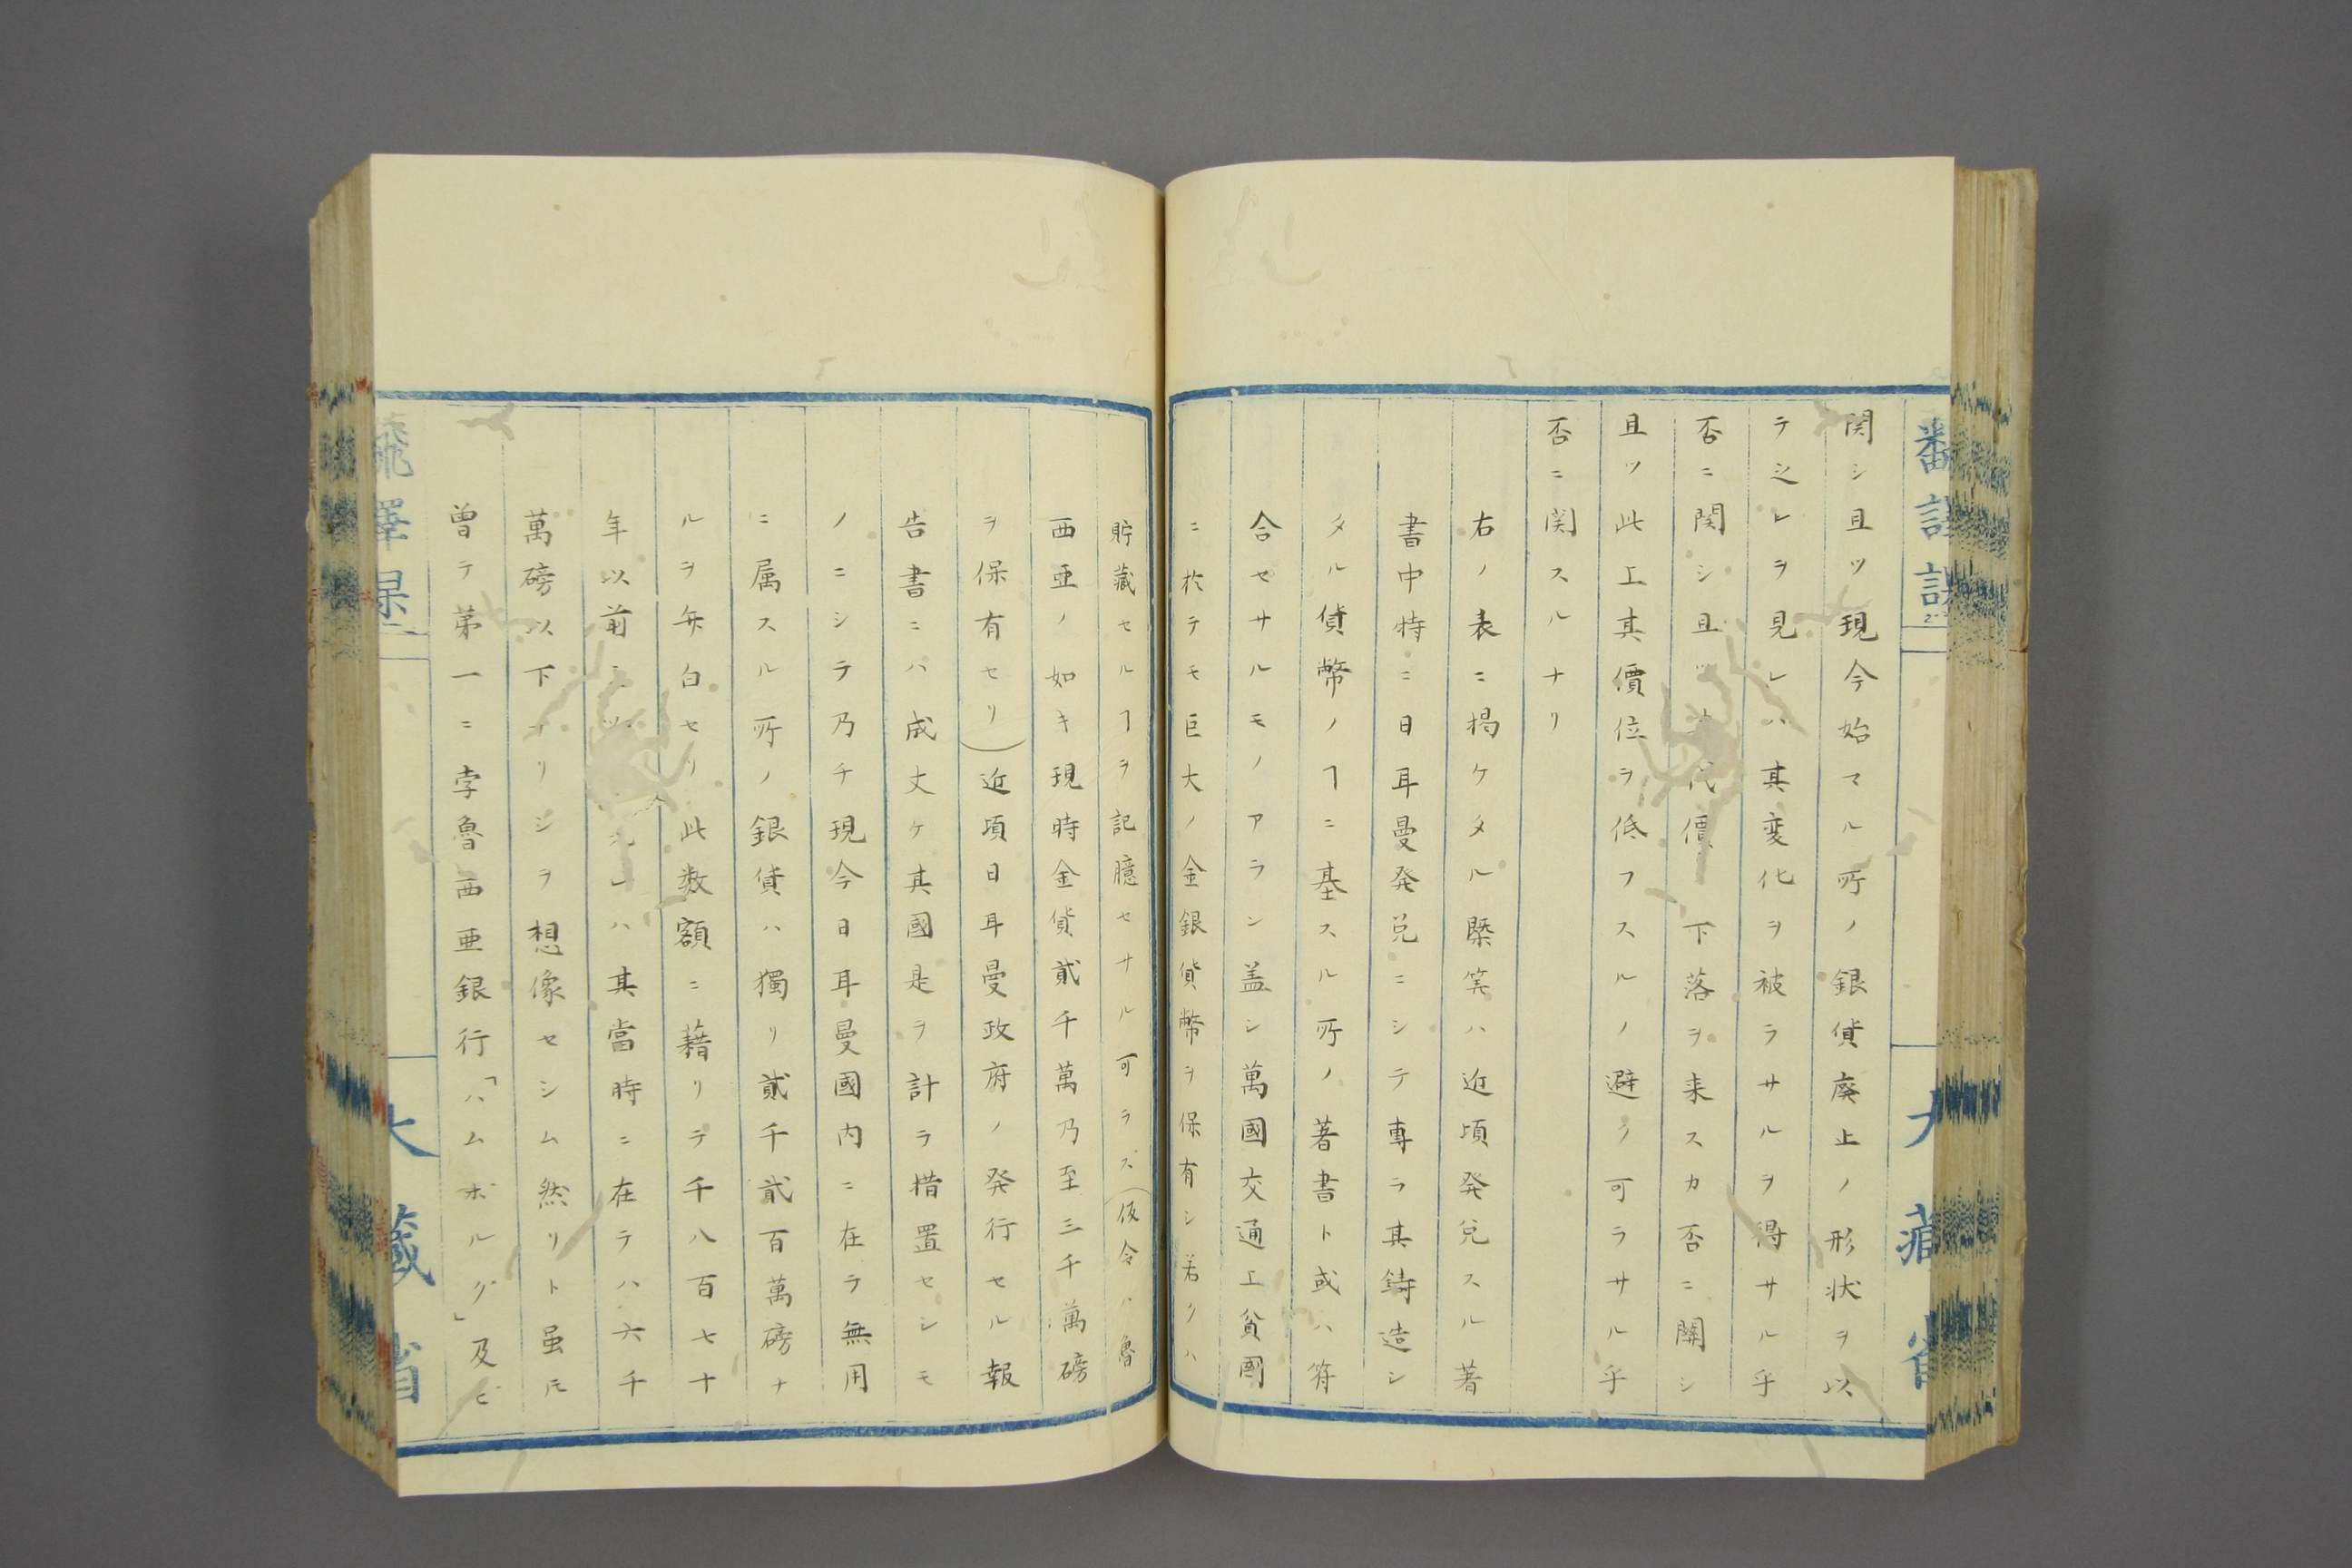 関シ且ツ現今始マル所ノ銀貨廃止ノ形状ヲ以
テ之レヲ見レハ其変化ヲ被ラサルヲ得サル乎
否ニ関シ且 代價 下落ヲ来スカ否ニ関シ
且ツ此上其價位ヲ低フスルノ避ク可ラサル乎
否ニ関スルナリ
右ノ表ニ掲ケタル槩算ハ近頃発兌スル著
書中特ニ日耳曼発兌ニシテ専ラ其鋳造シ
タル貨幣ノヿニ基スル所ノ著書ト或ハ符
合セサルモノアラン盖シ萬國交通上貧國
ニ於テモ巨大ノ金銀貨幣ヲ保有シ若クハ
貯蔵セルヿヲ記臆セサル可ラズ(仮令ハ魯
西亜ノ如キ現時金貨貳千萬乃至三千萬磅
ヲ保有セリ)近項日耳曼政府ノ発行セル報
告書ニハ成丈ケ其國是ヲ計ラ措置セシモ
ノニシテ乃チ現今日耳曼國内ニ在ラ無用
ニ属スル所ノ銀貨ハ獨リ貳千貳百萬磅ナ
ルヲ弁白セリ此数額ニ藉リテ千八百七十
年以前ニ レハ其當時ニ在テハ六千
萬磅以下ナリシヲ想像セシム然リト虽𪜈
曽テ第一ニ孛魯西亜銀行「ハムボルグ」及ビ
大藏省
大藏省